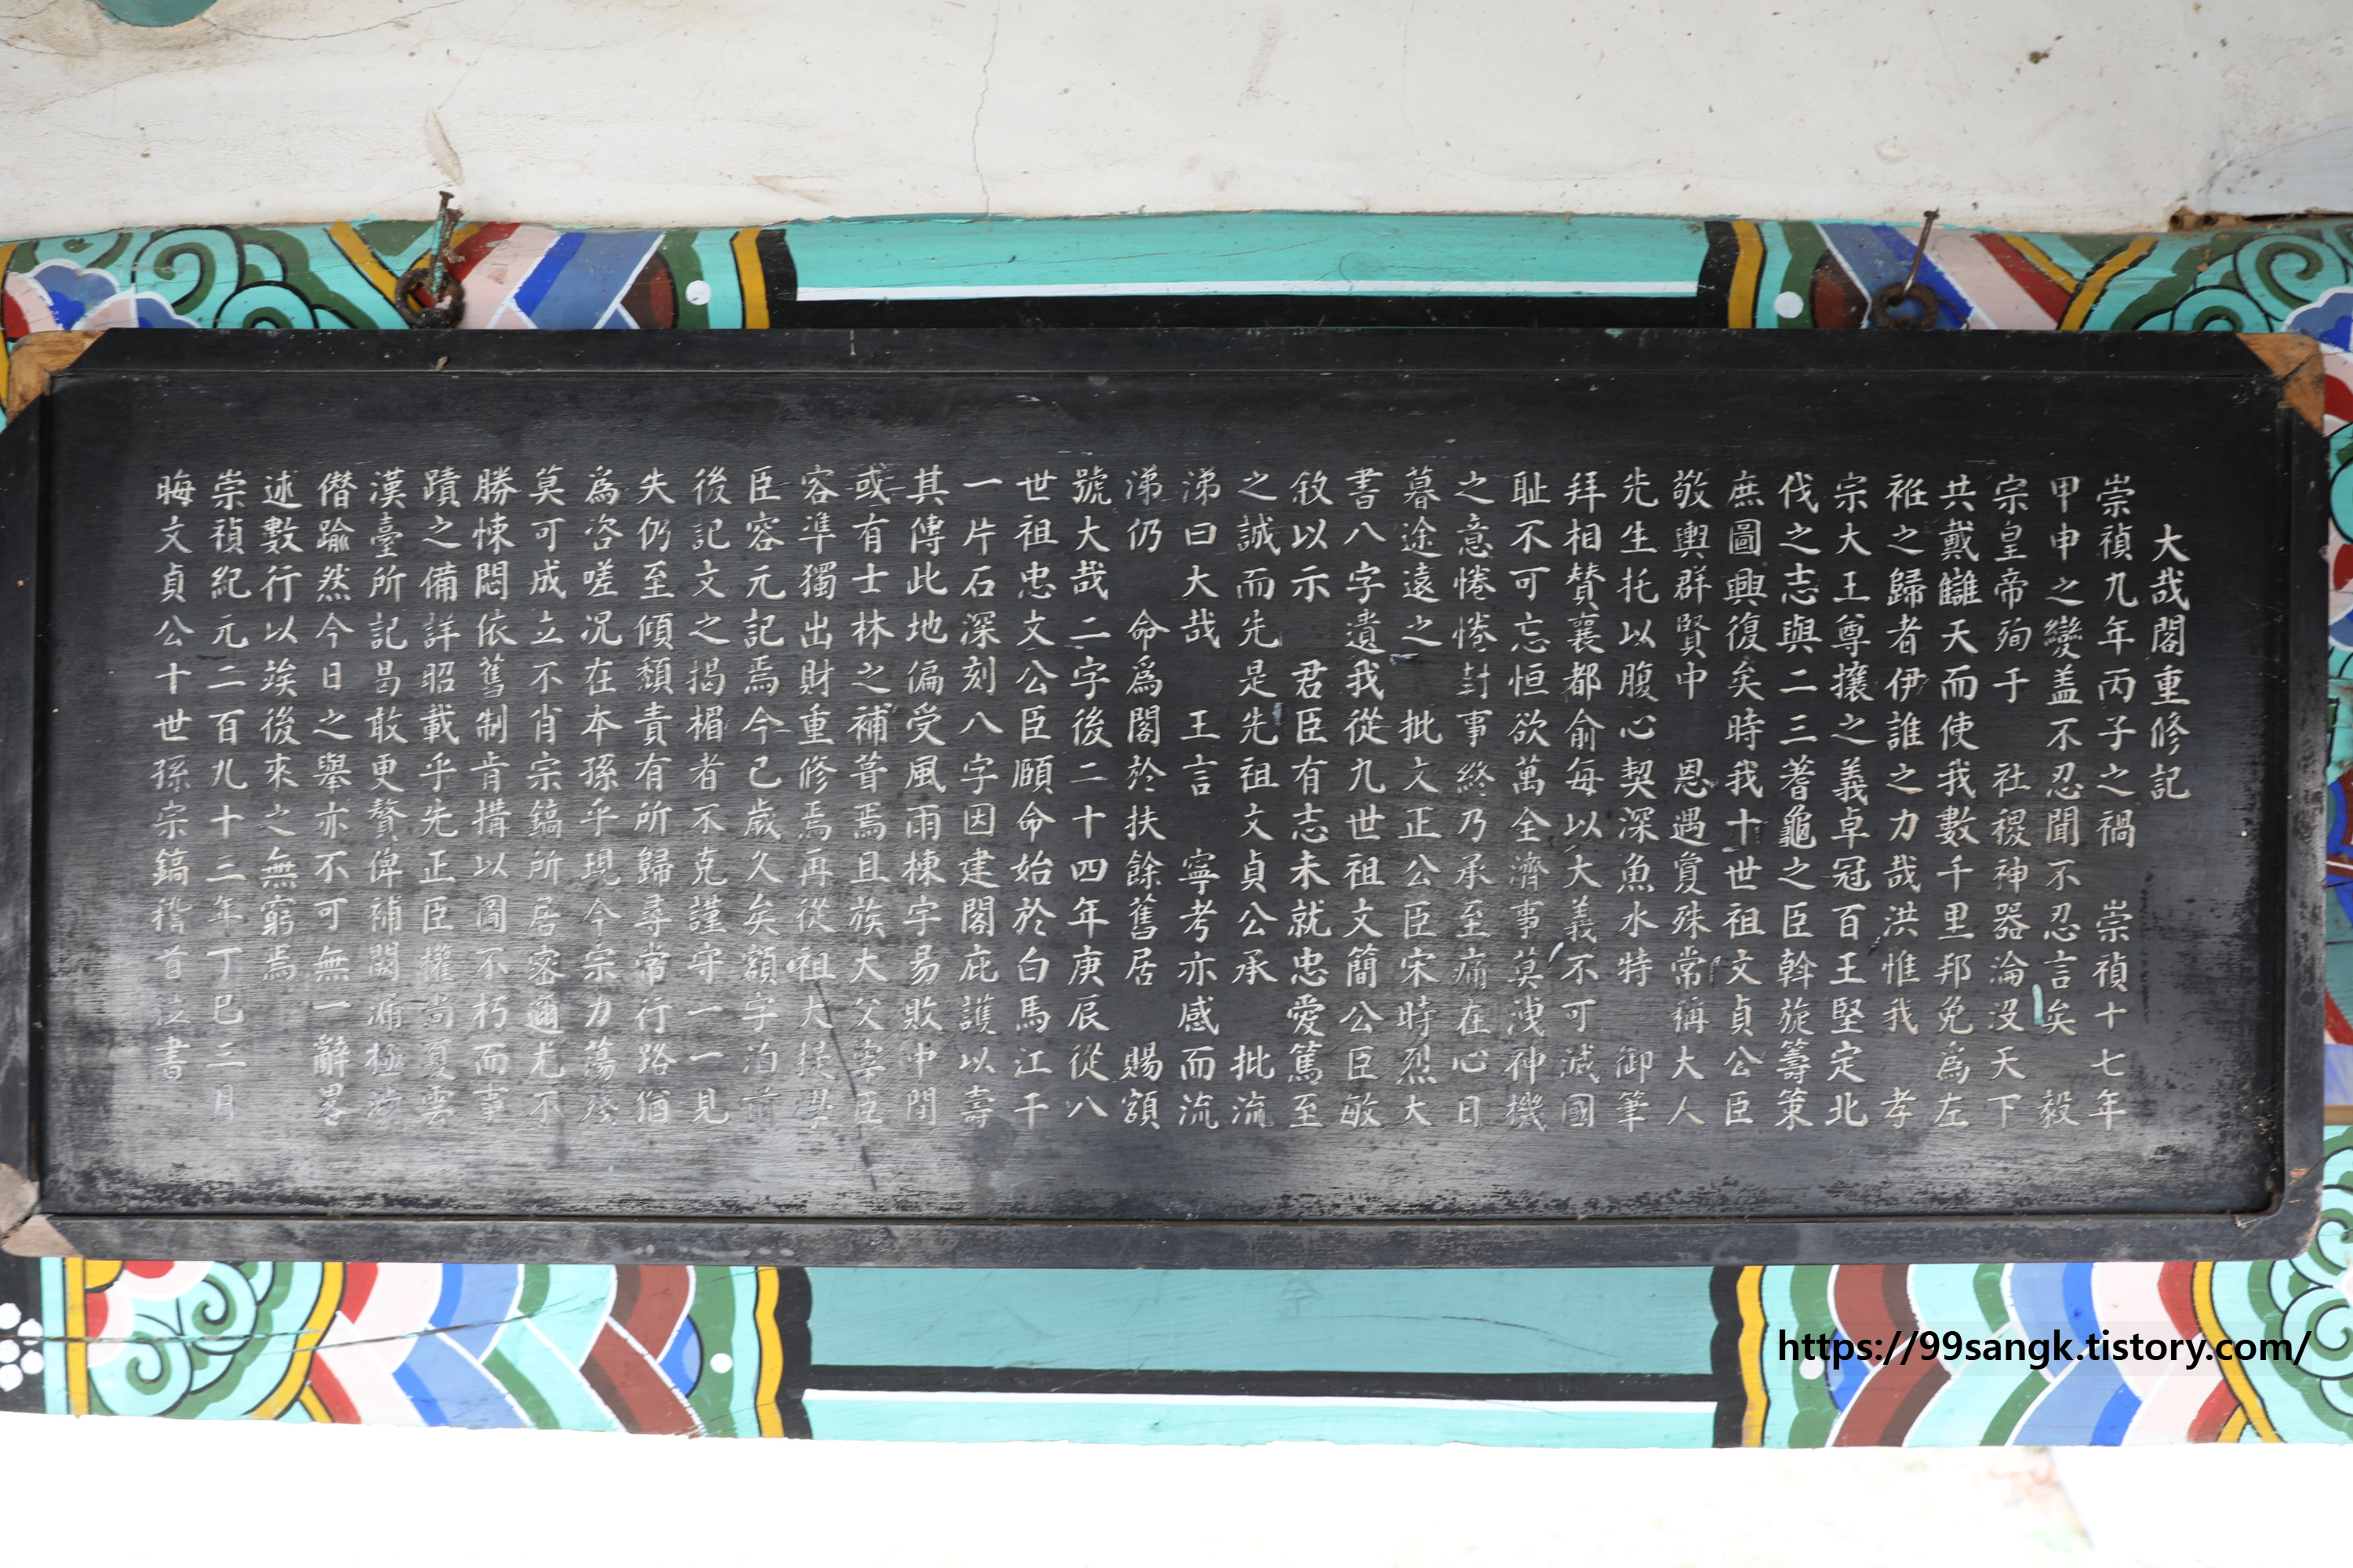 大哉閣重修記
崇禎九年丙子之禍 崇禎十七年
甲申之變盖不忍聞不忍言矣 毅
宗皇帝殉于 社稷神器淪没天下
共戴讎天而使我數千里邦免為左
袵之歸者伊誰之力哉洪惟我 孝
宗大王尊攘之義卓冠百王堅定北
伐之志與二三蓍龜之臣斡旋籌策
庶圖興復矣時我十世祖文貞公臣
敬輿群賢中 恩遇夐殊常稱大人
先生托以腹心契深魚水特 御筆
拜相賛襄都俞每以大義不可滅國
耻不可忘恒欲萬全濟事莫洩神機
之意惓惓封事終乃承至痛在心日
暮途遠之 批文正公臣宋時烈大
書八字遺我從九世祖文簡公臣敏
敘以示 君臣有志未就忠愛篤至
之誠而先是先祖文貞公承 批流
涕曰大哉 王言 寧考亦感而流
涕仍 命爲閣於扶餘舊居 賜額
號大哉二字後二十四年庚辰從八
世祖忠文公臣頤命始於白馬江干
一片石深刻八字因建閣庇護以壽
其傳此地偏受風雨棟宇易敗中間
或有士林之補葺焉且族大父宰臣
容準獨出財重修焉再從祖大提學
臣容元記焉今已歲久矣額字泊前
後記文之揭楣者不克謹守一一見
失仍至傾頹責有所歸尋常行路猶
爲咨嗟况在本孫乎現今宗力蕩殘
莫可成立不肖宗鎬所居密邇尤不
勝悚悶依舊制肯搆以圖不朽而事
蹟之備詳昭載乎先正臣權尚夏雲
漢臺所記曷敢更贅俾補闕漏極涉
僭踰然今日之舉亦不可無一辭畧
述數行以竢後來之無窮焉
崇禎紀元二百九十三年丁巳三月
晦文貞公十世孫宗鎬稽首泣書
https://99sangk.tistory.com/